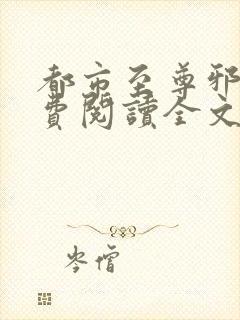 都市至尊邪
費閱讀全文
岑僧